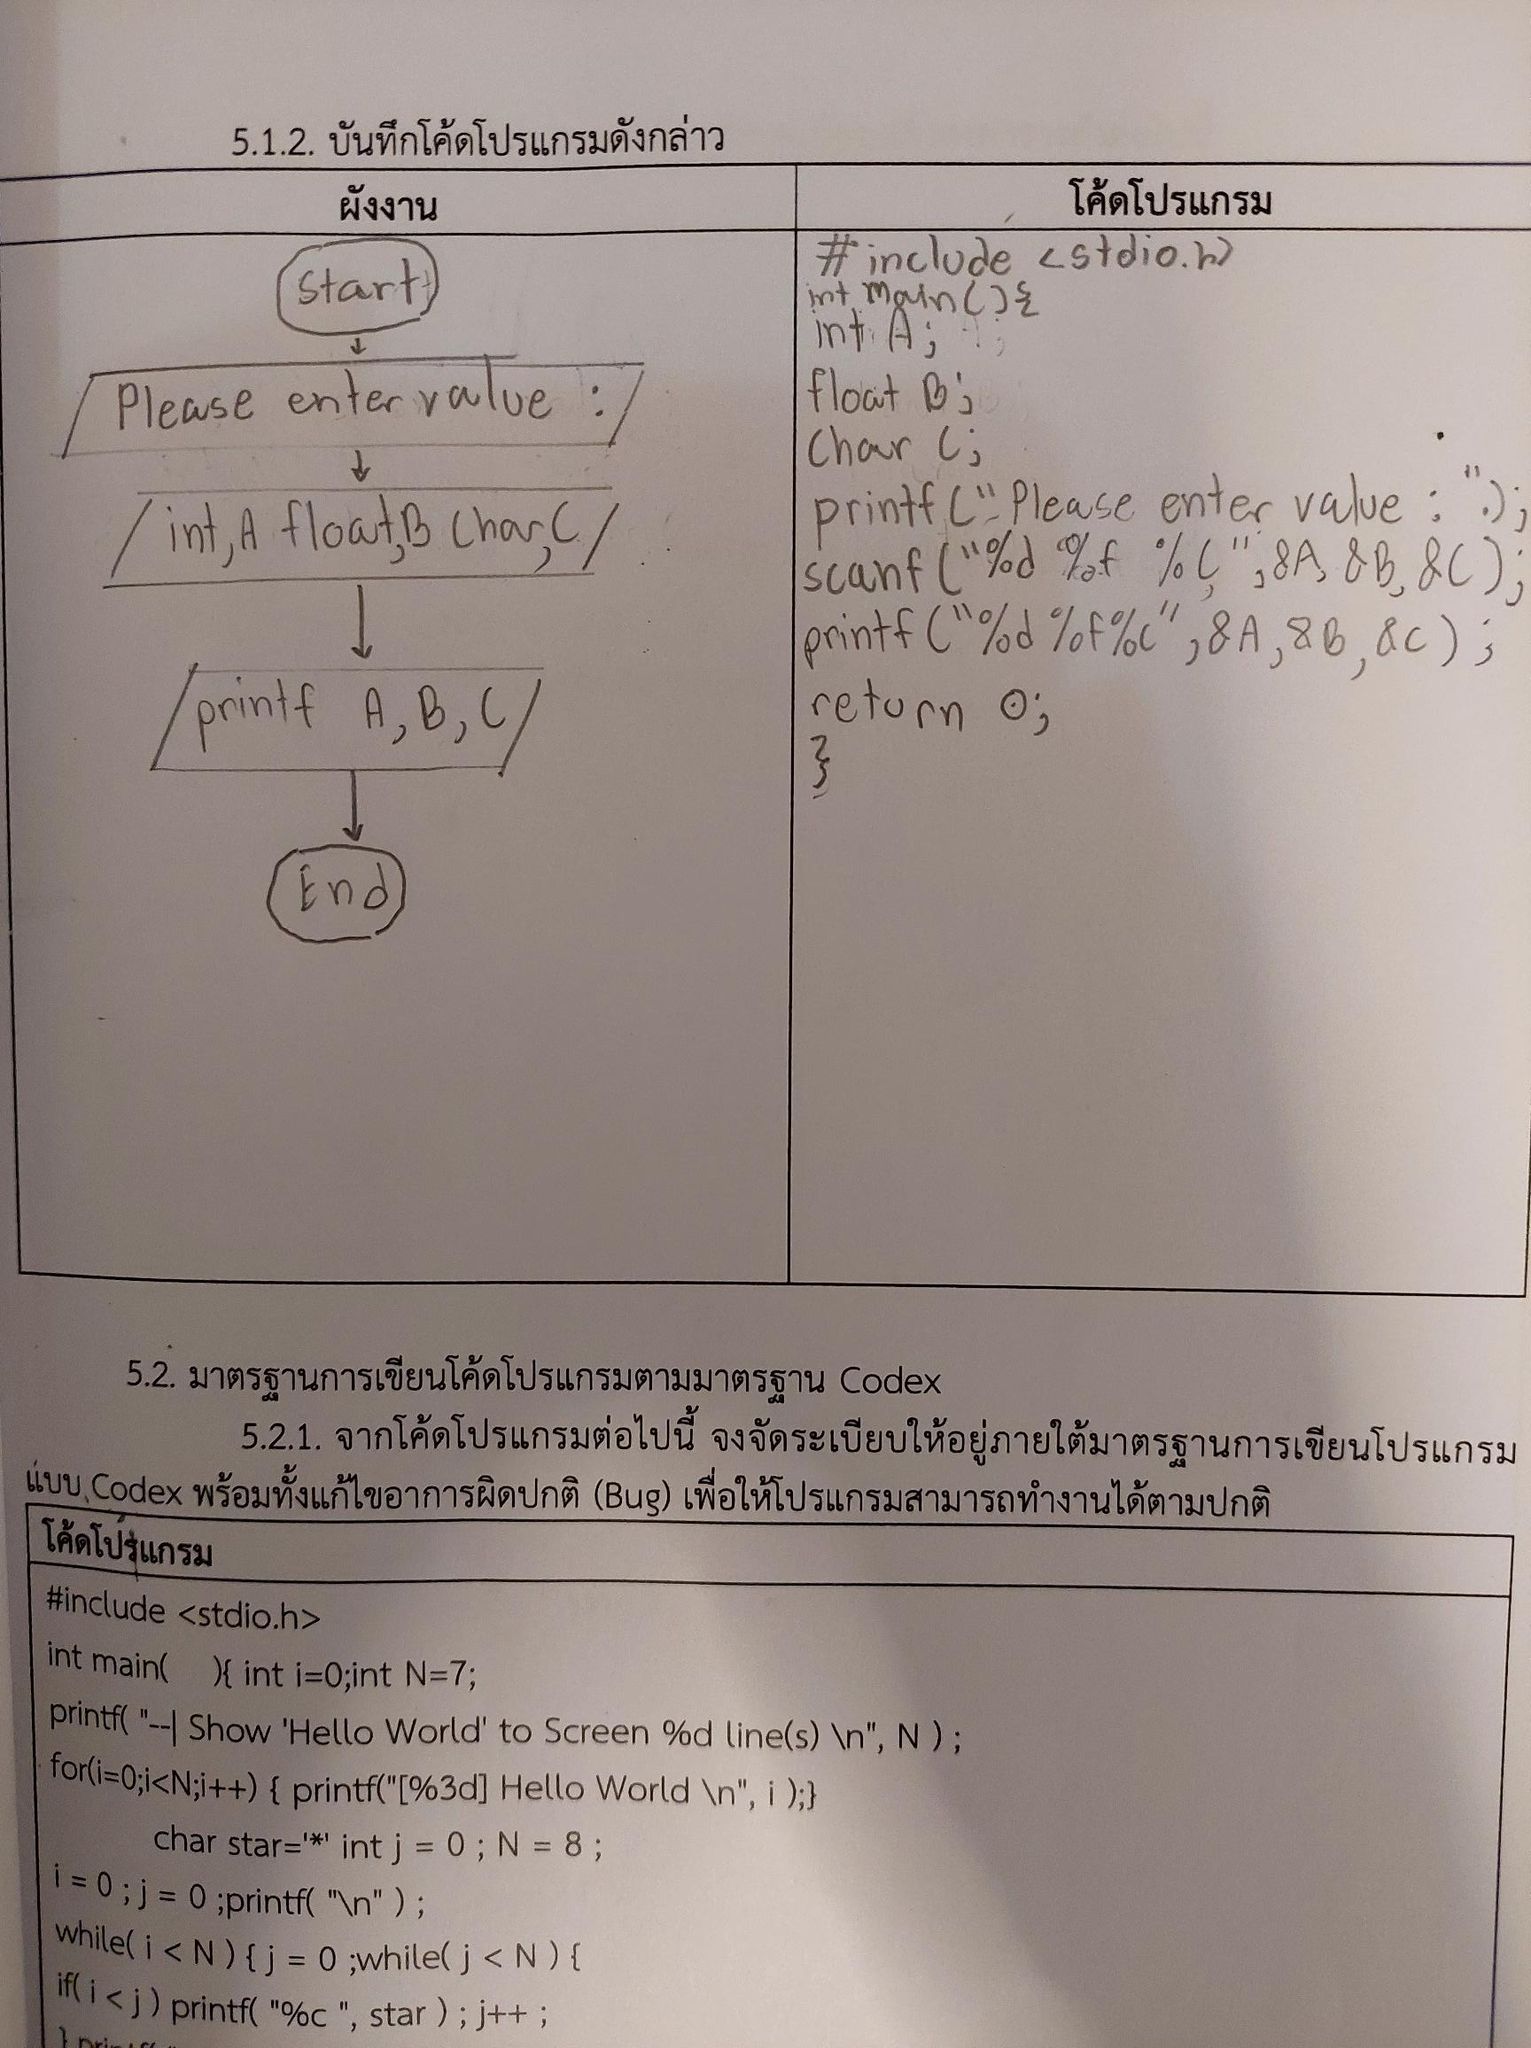 5.1.2. บันทึกโค้ดโปรแกรมดังกล่าว
ผังงาน
start
Please enter value :
int,A float,B Char,C
printf A, B, C
End
โค้ดโปรแกรม
#include <stdio.h>
int main(){
int A;
float B;
Char C;
printf("Please enter value : ");
scanf("%d %f %c",&A,&B,&C);
printf("%d %f%c",&A,&B,&C);
return 0;
}
5.2. มาตรฐานการเขียนโค้ดโปรแกรมตามมาตรฐาน Codex
5.2.1. จากโค้ดโปรแกรมต่อไปนี้ จงจัดระเบียบให้อยู่ภายใต้มาตรฐานการเขียนโปรแกรม
แบบ Codex พร้อมทั้งแก้ไขอาการผิดปกติ (Bug) เพื่อให้โปรแกรมสามารถทำงานได้ตามปกติ
โค้ดโปรแกรม
#include <stdio.h>
int main(    ){ int i=0;int N=7;
printf( "--| Show 'Hello World' to Screen %d line(s) \n", N ) ;
for(i=0;i<N;i++) { printf("[%3d] Hello World \n", i );}
char star='*' int j = 0 ; N = 8 ;
i = 0 ; j = 0 ;printf( "\n" ) ;
while( i < N ) { j = 0 ;while( j < N ) {
if( i < j ) printf( "%c ", star ) ; j++ ;